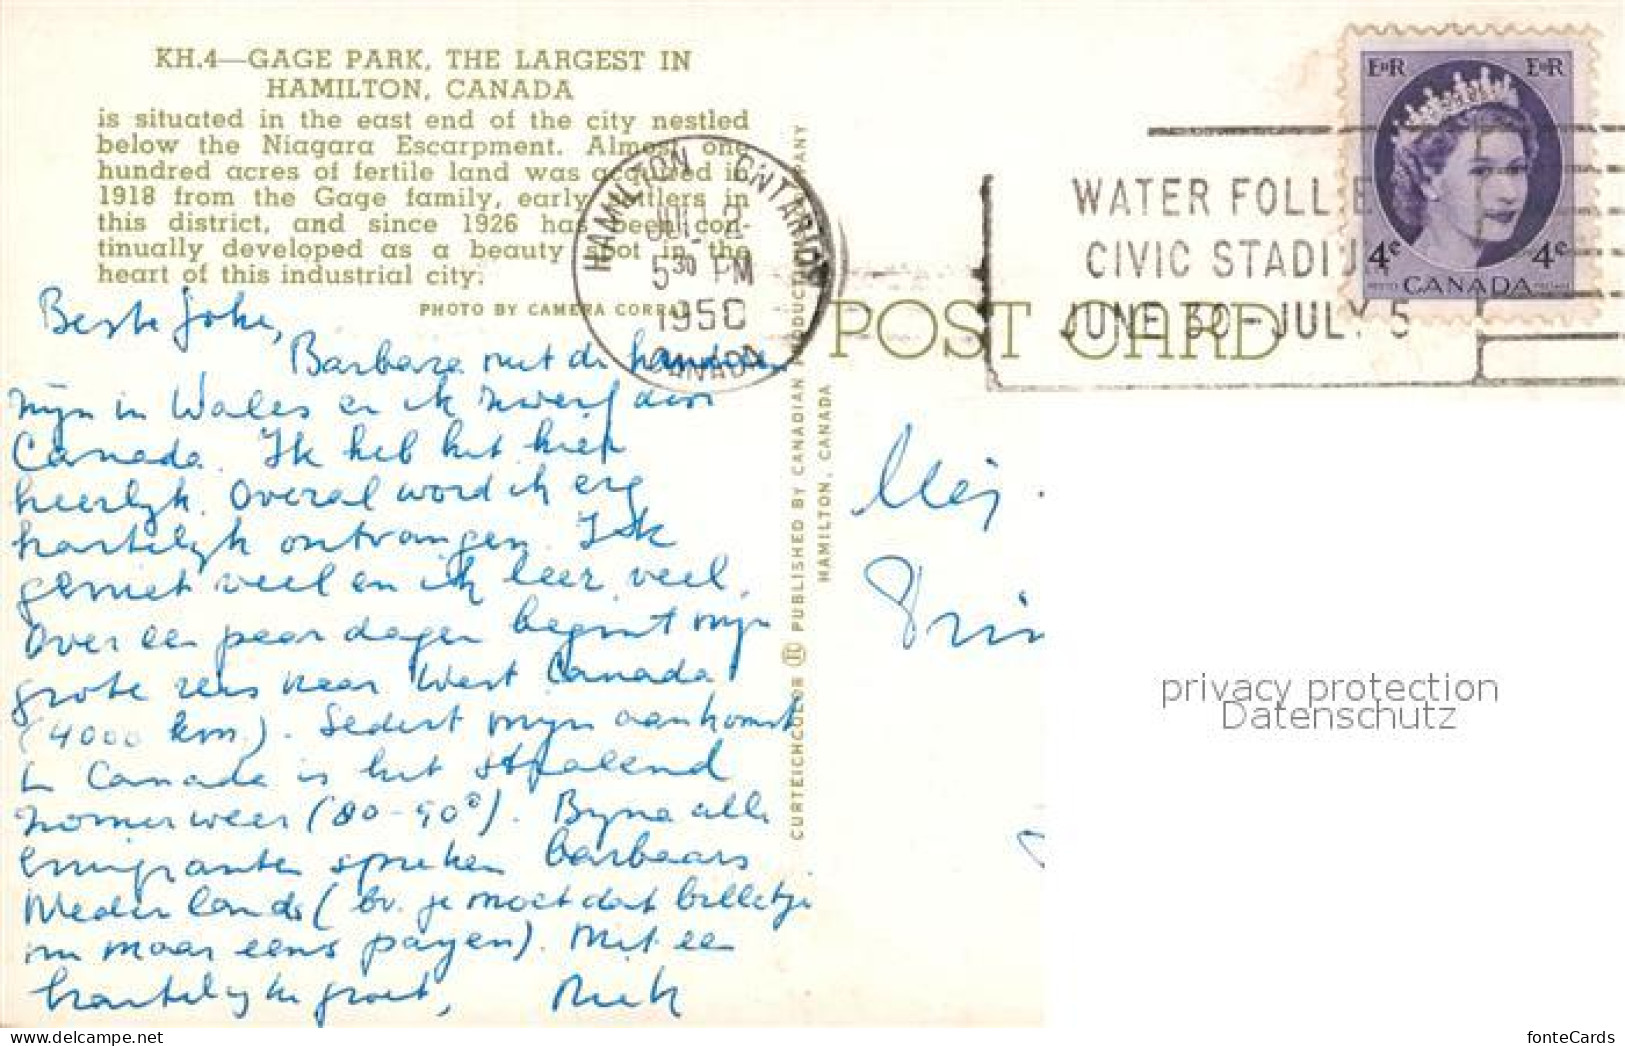 KH.4—GAGE PARK, THE LARGEST IN
HAMILTON, CANADA
is situated in the east end of the city nestled
below the Niagara Escarpment. Almost one
hundred acres of fertile land was acquired in
1918 from the Gage family, early settlers in
this district, and since 1926 has been con-
tinually developed as a beauty spot in the
heart of this industrial city.
PHOTO BY CAMERA CORRAL
Beste Joke,
Barbara met de
zijn in Wales en ik zwerf door
Canada. Ik heb het hier
heerlijk. Overal word ik erg
hartelijk ontvangen. Ik
geniet veel en ik leer veel.
Over een paar dagen begint mijn
grote reis naar West Canada
(4000 km). Sedert mijn aankomst
in Canada is het stralend
zomerweer (80-90°). Bijna alle
emigranten spreken barbaars
Nederlands (bv. je moet dat billetje
nu maar eens payen). Met een
hartelijke groet,
HAMILTON ONTARIO
JUL 2
5 30 PM
CANADA
CURTEICHCOLOR PUBLISHED BY CANADIAN PRODUCTION COMPANY
HAMILTON, CANADA
POST CARD
WATER FOLLIES
CIVIC STADIUM
JUNE 30 - JULY 5
EIIR EIIR
4c 4c
POSTES CANADA POSTAGE
Mej.
privacy protection
Datenschutz
fonteCards